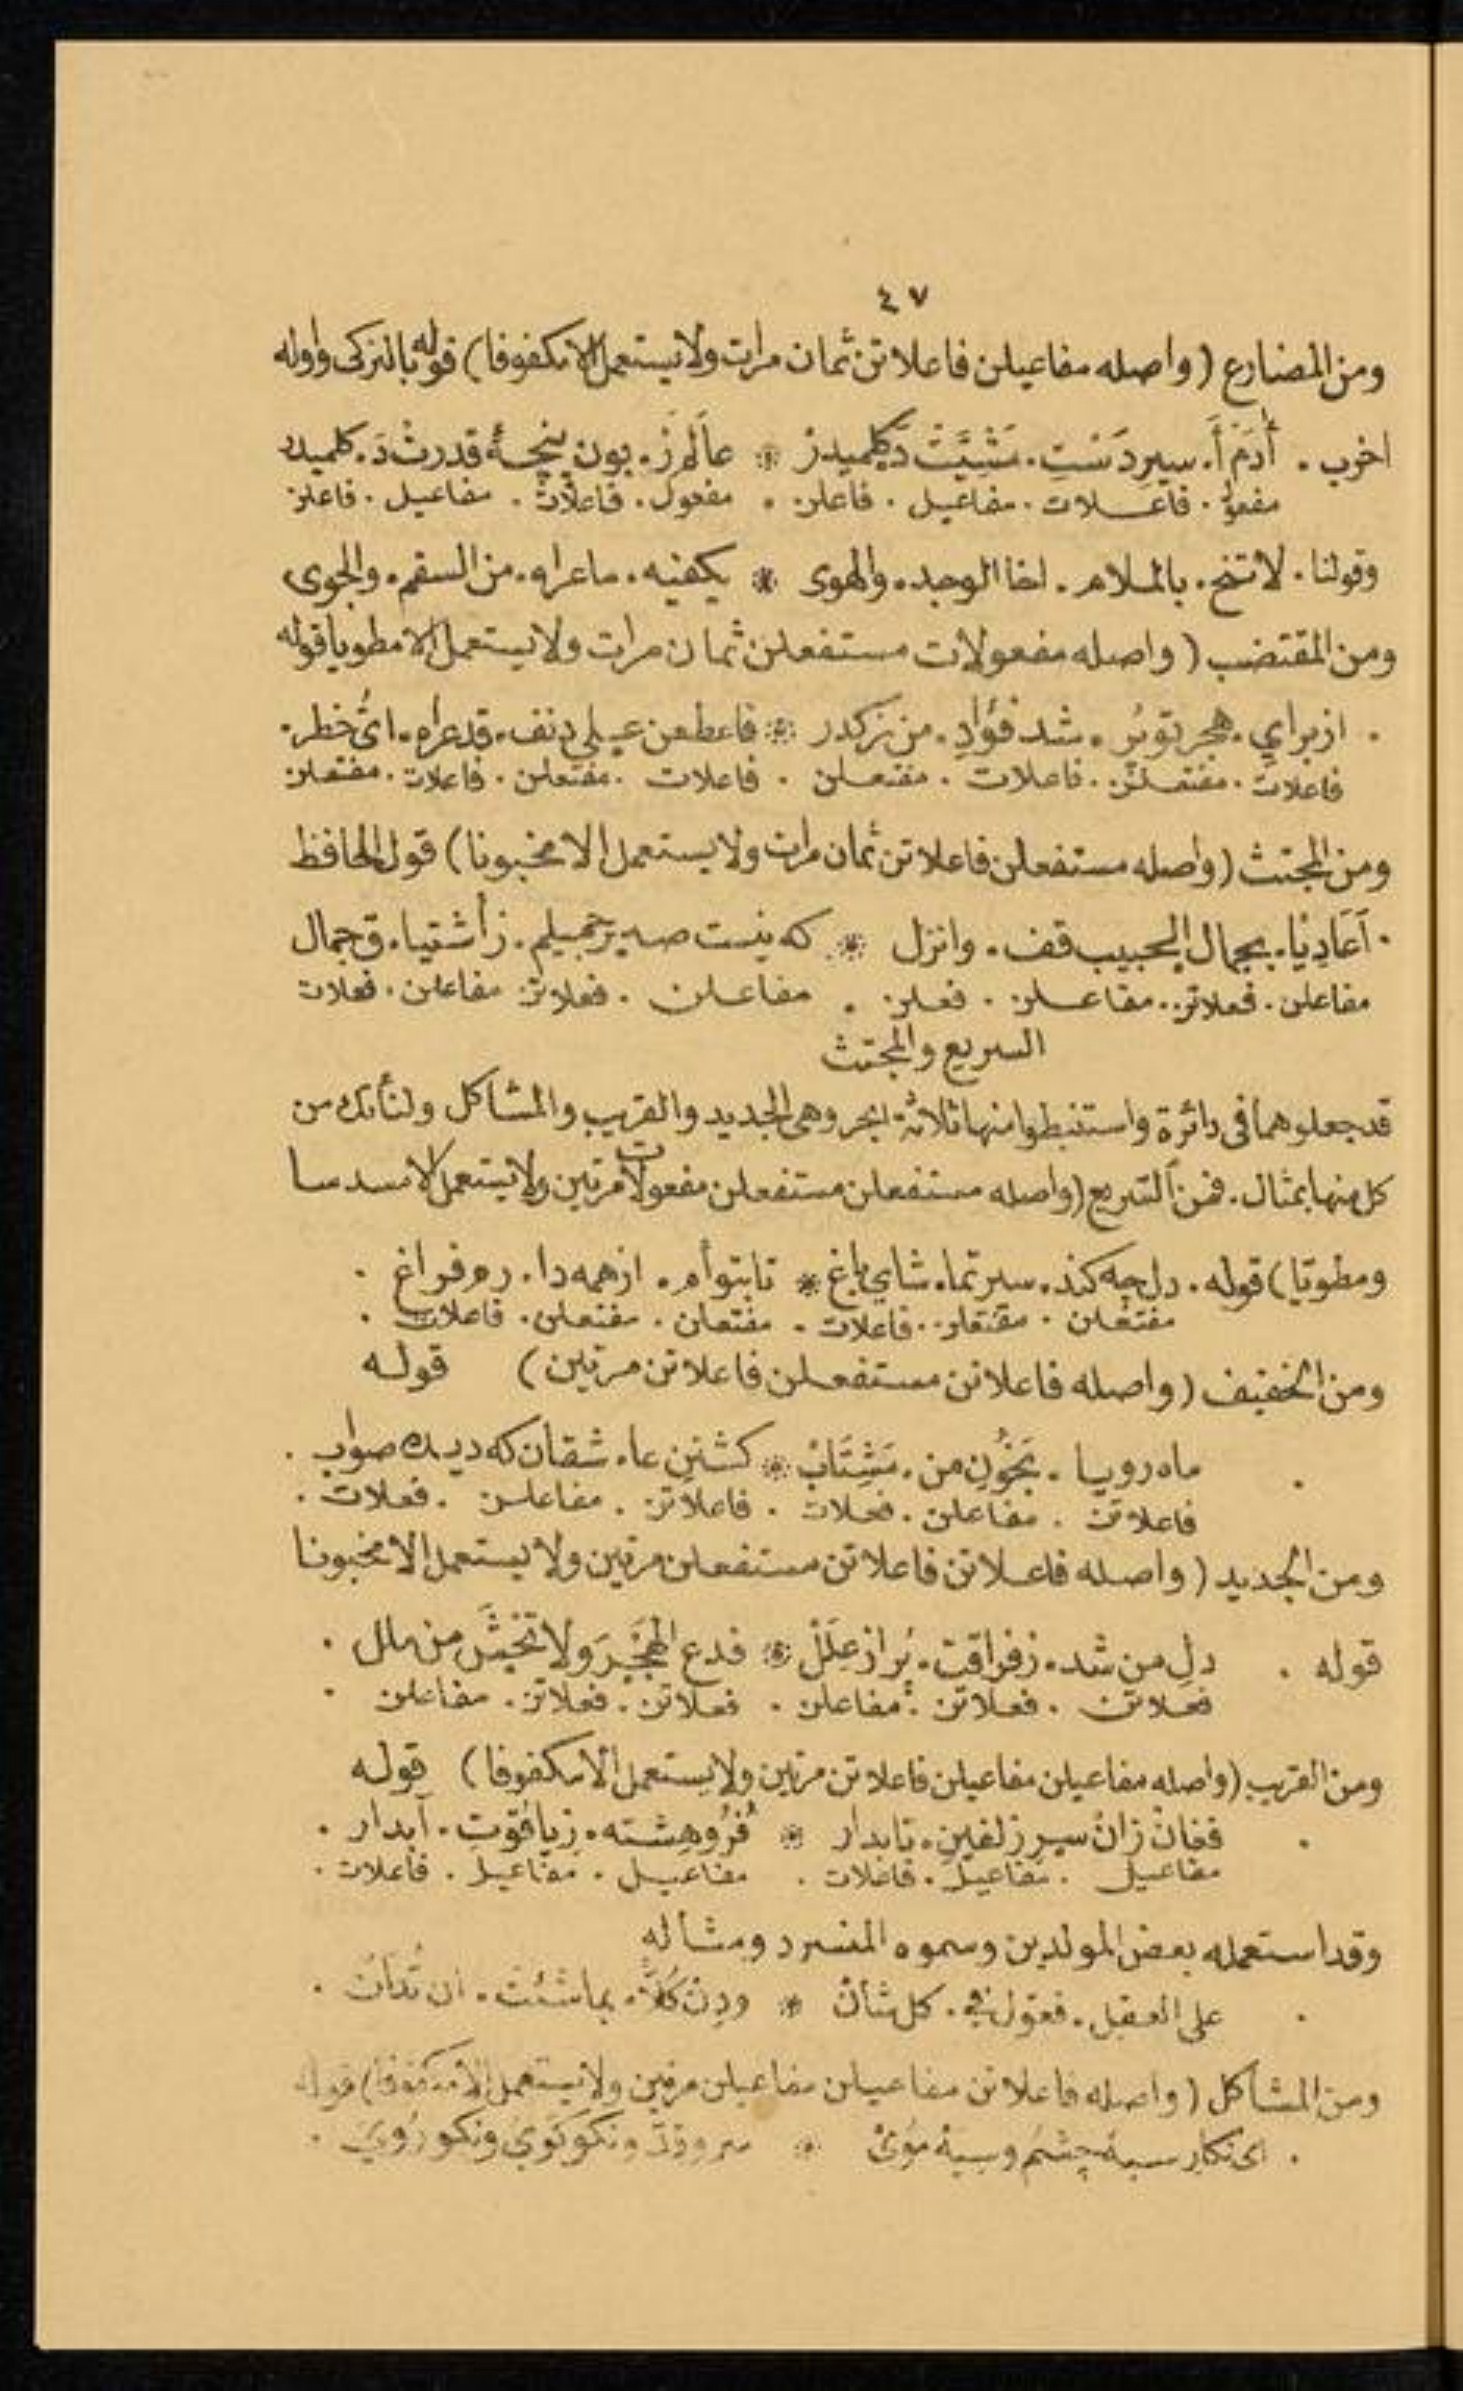 ٤٧
ومن المضارع (واصله مفاعيلن فاعلاتن ثمان مرات ولا يستعمل الا مكفوفا) قوله بالتركى واوله
اخرب . أدَمْ أَ. سيرِ دَسْتِ. مَشِيَّتْ دَكِلميدرْ * عالَمْ زَ. بون پنجهٔ قدرتْ دَ. كلميدر
مفعول . فاعــلات . مفاعيل . فاعلن . مفعول . فاعلات . مفاعيل . فاعلن
وقولنا . لا تنخ . بالملام . اخا الوجد . والهوى * يكفيه . ما عراه . من السقم . والجوى
ومن المقتضب (واصله مفعولات مستفعلن ثمان مرات ولا يستعمل الا مطويا قوله
. از براىِ . هجر توبُر . شد فؤادِ . من زكدر * فاعطفن عــلى دنف . قد عراه . اىُّ خطر .
فاعلات . مفتعلن . فاعلات . مفتعلن . فاعلات . مفتعلن . فاعلات . مفتعلن
ومن المجتث (واصله مستفعلن فاعلاتن ثمان مرات ولا يستعمل الا مخبونا) قول الحافظ
. آعَادِيَا . بجمال الحبيب قف . وانزل * كه نيست صبر جميلم . زاشتيا . ق جمال
مفاعلن . فعلاتن . مفاعــلن . فعلن . مفاعلن . فعلاتن مفاعلن . فعلات
السريع والمجتث
قد جعلوهما فى دائرة واستنبطوا منها ثلاثة ابحر وهى الجديد والقريب والمشاكل ولنأتك من
كل منها بمثال . فمن السريع (واصله مستفعلن مستفعلن مفعولات مرتين ولا يستعمل الا مسدسا
ومطويا) قوله . دل چه كند . سر تما . شاى باغ * تابتوأم . ازهمه دا . رم فراغ .
مفتعلن . مفتعلن . فاعلات . مفتعلن . مفتعلن . فاعلات .
ومن الخفيف (واصله فاعلاتن مستفعلن فاعلاتن مرتين) قوله
. ماه رويـا . بَخُونِ من . مَشِتَابْ * كشتنِ عا . شقان كه ديد صواب .
فاعلاتن . مفاعلن . فعلات . فاعلاتن . مفاعلن . فعلات .
ومن الجديد (واصله فاعلاتن فاعلاتن مستفعلن مرتين ولا يستعمل الا مخبونا
قوله . دلِ من شد . زفراقت . پُر از عِلَلْ * فدع الهَجْرَ ولا تَخْشَ من ملل .
فعلاتن . فعلاتن . مفاعلن . فعلاتن . فعلاتن . مفاعلن .
ومن القريب (واصله مفاعيلن مفاعيلن فاعلاتن مرتين ولا يستعمل الا مكفوفا) قوله
. فغانْ زانْ سرِ زلفينِ . تابدار * فُرُو هِشته . زياقوتِ . آبدار .
مفاعيل . مفاعيل . فاعلات . مفاعيل . مفاعيل . فاعلات .
وقد استعمله بعض المولدين وسموه المنسرد ومثاله
. على العقل . فعوّل فى . كل شأنْ * ودِنْ كُلَّا . بما شئت . ان تُدانْ .
ومن المشاكل (واصله فاعلاتن مفاعيلن مفاعيلن مرتين ولا يستعمل الا مكفوفا) قوله
. اى نكار سيه چشم وسيه موىْ * سرو قدّ ونكو كوىْ ونكو روىْ .